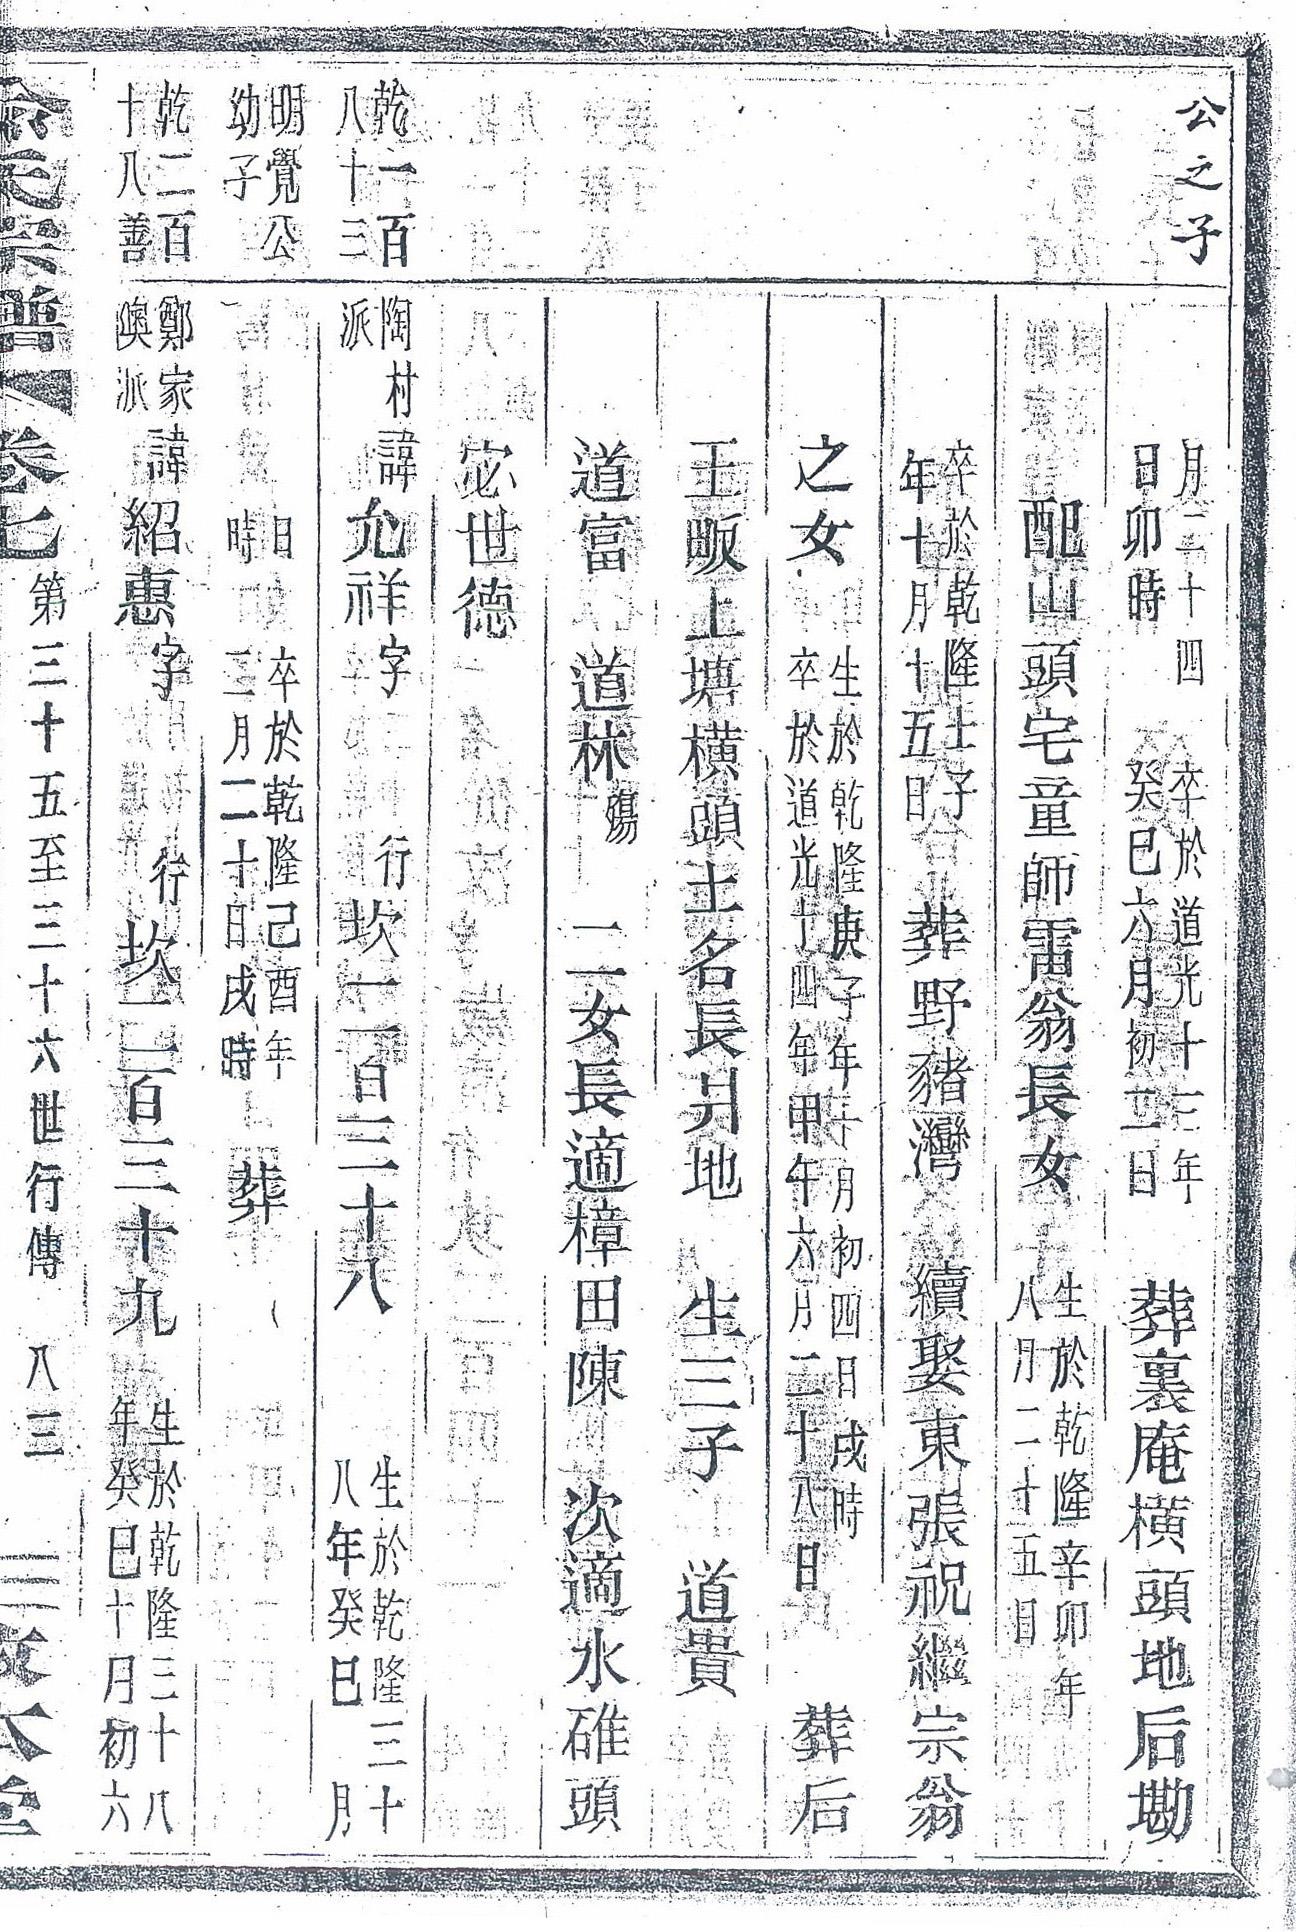 公之子
月二十四
日卯時
卒於道光十三年
癸巳六月初二日
葬裏庵橫頭地后墈
配山頭宅童師雷翁長女
生於乾隆辛卯年
八月二十五日
卒於乾隆壬子
年十月十五日
葬野豬灣
續娶東張祝繼宗翁
之女
生於乾隆庚子年十月初四日戌時
卒於道光十四年甲午六月二十八日
葬后
王畈上塘橫頭土名長爿地
生三子
道貴
道富
道林
殤
二女長適樟田陳
次適水碓頭
宓世德
乾一百
八十三
陶村
派
諱
允祥
字
行
坎一百三十八
生於乾隆三十
八年癸巳
月
明覺公
幼子
日
時
卒於乾隆己酉年
三月二十日戌時
葬
乾二百
十八善
鄭家
奧派
諱
紹惠
字
行
坎二百三十九
生於乾隆三十八
年癸巳十月初六
氏宗譜
卷七
第三十五至三十六世行傳
八三